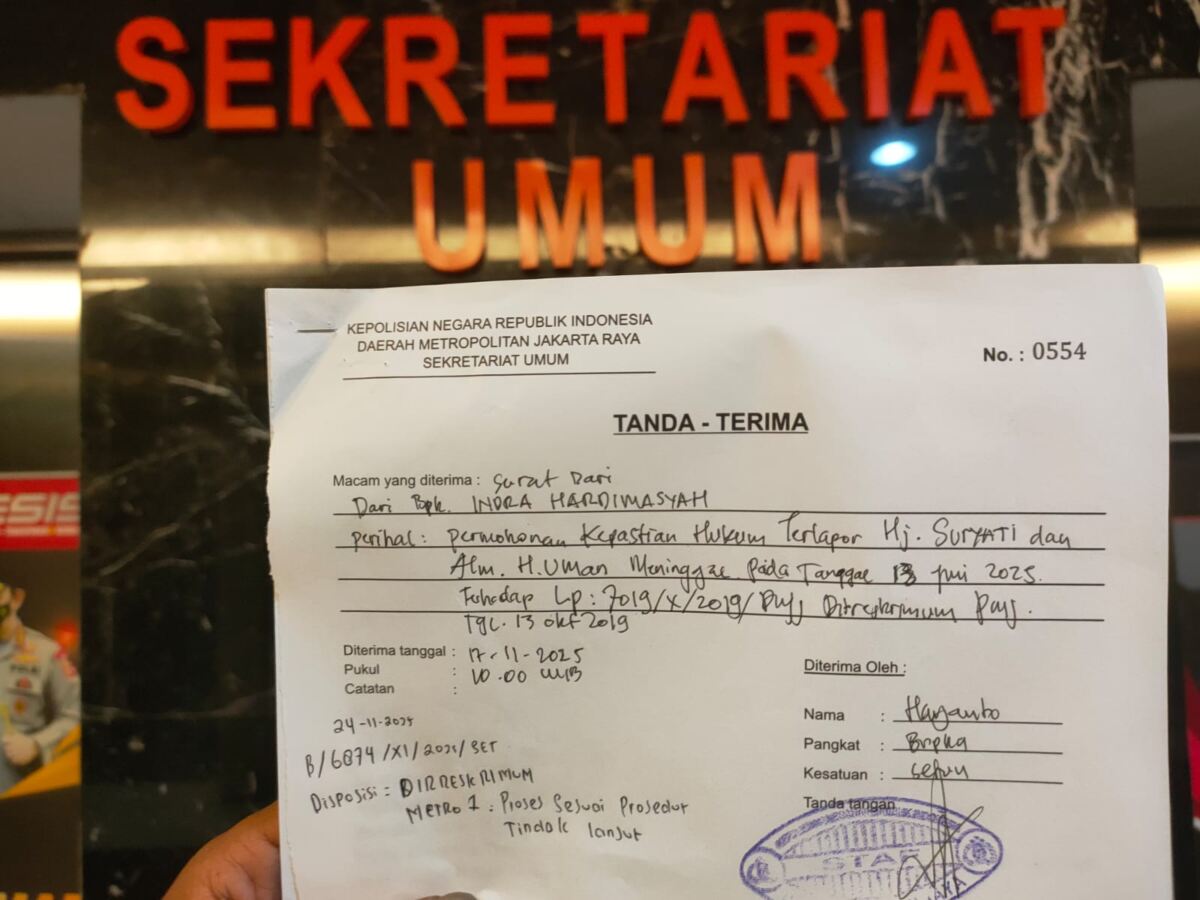 SEKRETARIAT
UMUM
KEPOLISIAN NEGARA REPUBLIK INDONESIA
DAERAH METROPOLITAN JAKARTA RAYA
SEKRETARIAT UMUM
No. : 0554
TANDA - TERIMA
Macam yang diterima : Surat Dari
Dari Bpk. INDRA HARDIMASYAH
perihal : permohonan Kepastian Hukum Terlapor Hj. SURYATI dan
Alm. H. UMAN Meninggal Pada Tanggal 13 juni 2025.
Lp : 7019/X/2019/PMJ Ditreskrimum PMJ.
Tgl. 13 okt 2019
Diterima tanggal : 17-11-2025
Pukul : 10.00 WIB
Catatan :
24-11-2025
B/6874/XI/2025/SET
Disposisi : DIRRESKRIMUM
METRO 1 : Proses Sesuai Prosedur
Tindak lanjut
Diterima Oleh :
Nama : Haryanto
Pangkat : Bripka
Kesatuan : Setum
Tanda tangan
STAF
JAYA
ESIS